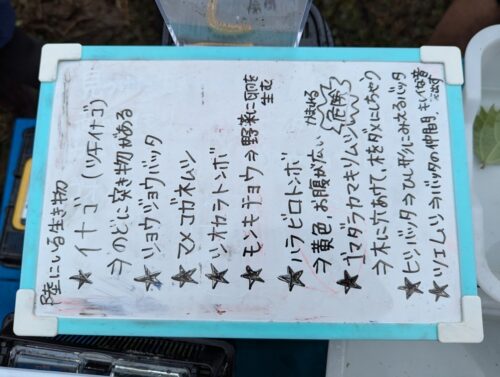 陸にいる生き物
★イナゴ (ツチイナゴ)
⇒のどに突き物がある
★ショウリョウバッタ
★マメコガネムシ
★シオカラトンボ
★モンキチョウ⇒野菜に卵を生む
★ハラビロトンボ
⇒黄色、お腹が広い
★ゴマダラカマキリムシ 危険
⇒木に穴あけて、木をダメにしちゃう
★ヒシバッタ⇒ひし形にみえるバッタ
★ツユムシ⇒バッタの仲間